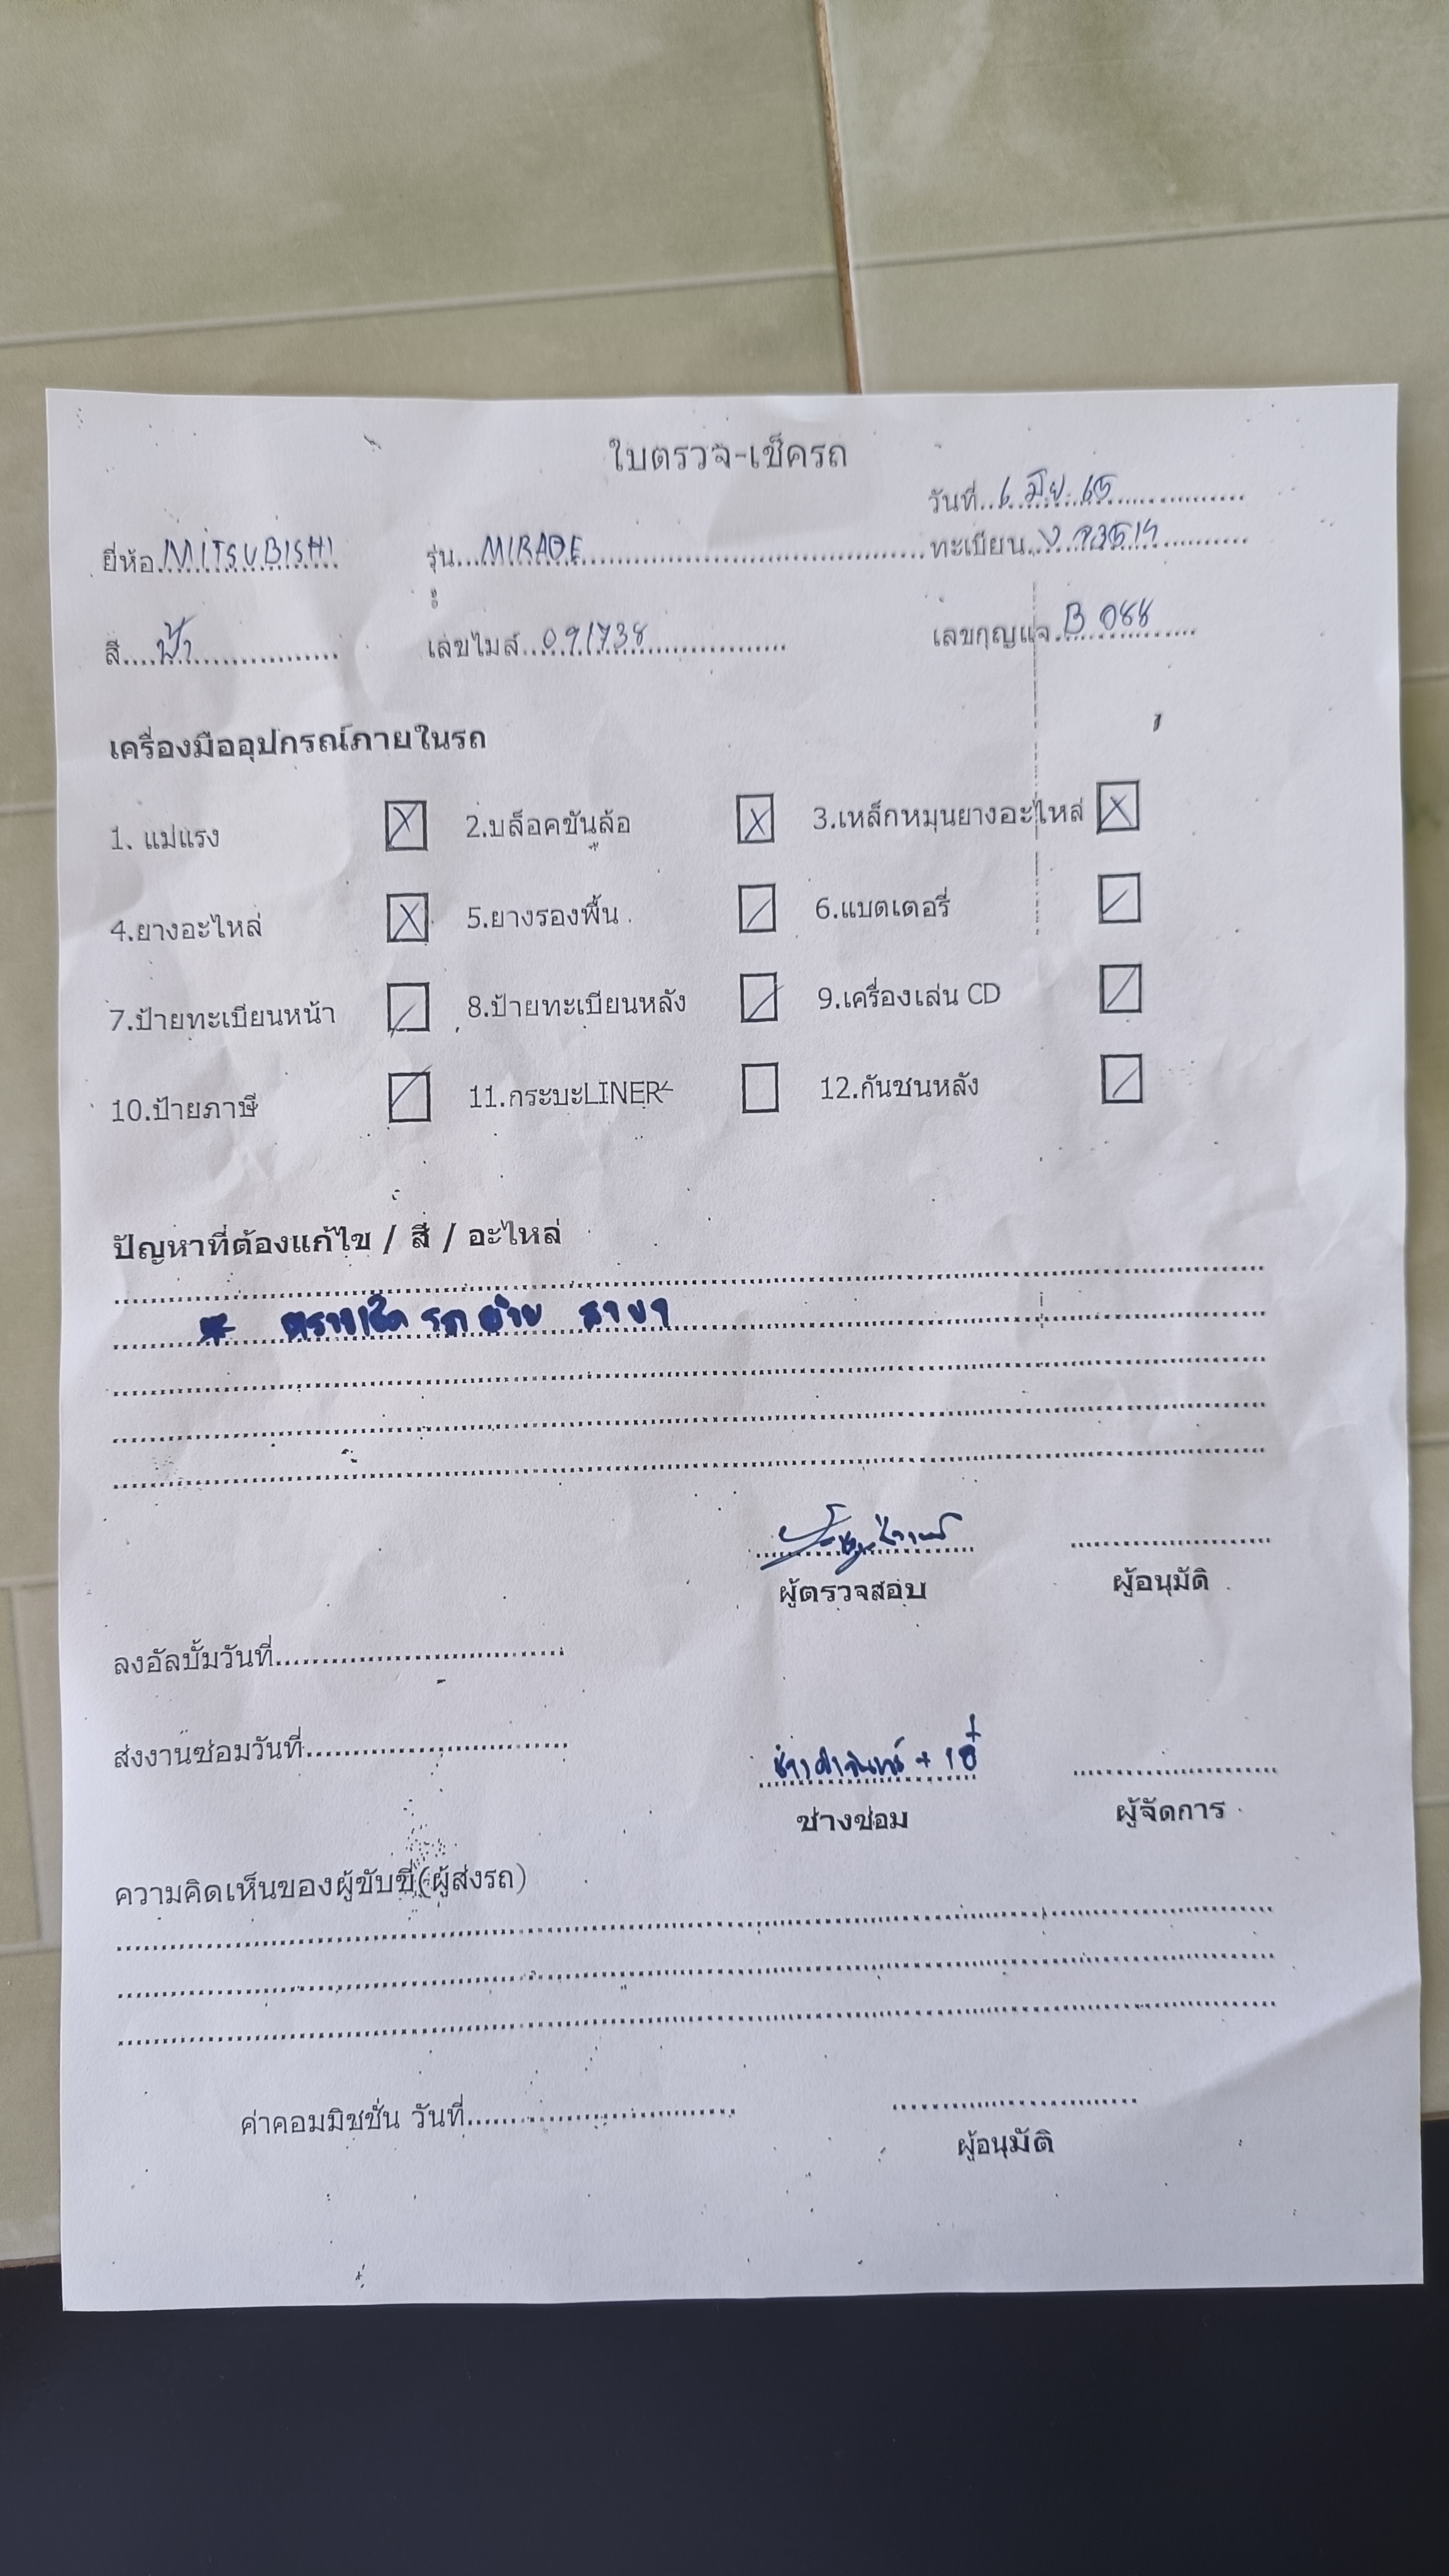 ใบตรวจ-เช็ครถ
วันที่..6 มิย. 65
ยี่ห้อ MITSUBISHI รุ่น...MIRAGE ทะเบียน
สี....ฟ้า เลขไมล์...091738 เลขกุญแจ.B 088
เครื่องมืออุปกรณ์ภายในรถ
1. แม่แรง 2.บล็อคขันล้อ 3.เหล็กหมุนยางอะไหล่
4.ยางอะไหล่ 5.ยางรองพื้น 6.แบตเตอรี่
7.ป้ายทะเบียนหน้า 8.ป้ายทะเบียนหลัง 9.เครื่องเล่น CD
10.ป้ายภาษี 11.กระบะLINER 12.กันชนหลัง
ปัญหาที่ต้องแก้ไข / สี / อะไหล่
* ตรวจเช็ค รถ สาขา
ผู้ตรวจสอบ ผู้อนุมัติ
ลงอัลบั้มวันที่
ส่งงานซ่อมวันที่
ช่างซ่อม ผู้จัดการ
ความคิดเห็นของผู้ขับขี่(ผู้ส่งรถ)
ค่าคอมมิชชั่น วันที่
ผู้อนุมัติ